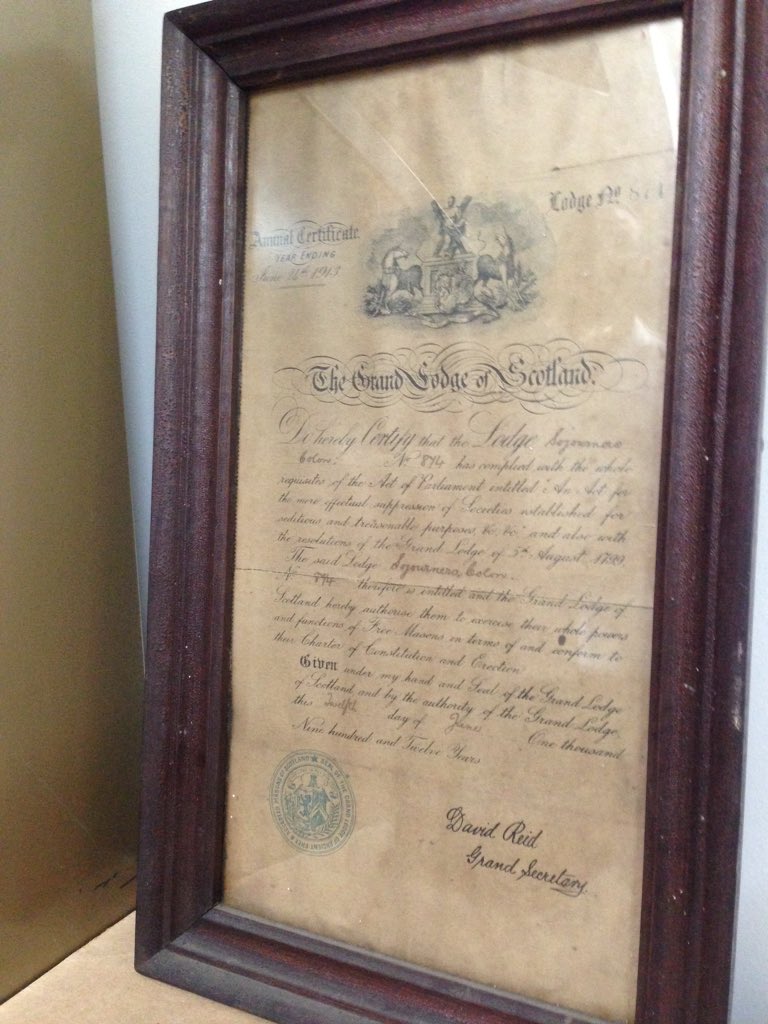 Lodge No 874
Annual Certificate
YEAR ENDING
June 24th 1913
The Grand Lodge of Scotland.
Do hereby Certify that the Lodge Sojourners
Colon. No 874 has complied with the whole
requisites of the Act of Parliament entitled "An Act for
the more effectual suppression of Societies established for
seditious and treasonable purposes, &c, &c" and also with
the resolutions of the Grand Lodge of 5th August 1799.
The said Lodge Sojourners, Colon.
No 874 therefore is entitled and the Grand Lodge of
Scotland hereby authorise them to exercise their whole powers
and functions of Free Masons in terms of and conform to
their Charter of Constitution and Erection
Given under my hand and Seal of the Grand Lodge
of Scotland, and by the authority of the Grand Lodge,
this twelfth day of June One thousand
Nine hundred and Twelve Years
SEAL OF THE GRAND LODGE OF ANCIENT FREE & ACCEPTED MASONS OF SCOTLAND
David Reid
Grand Secretary.